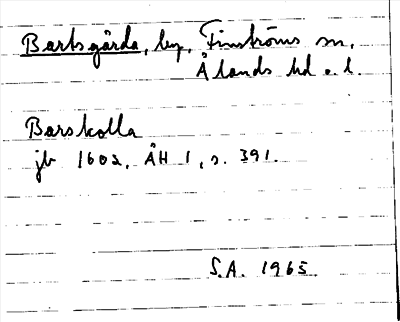 Bartsgårda, by, Finströms sn,
Ålands hd o. l.
Barskolla
jb 1602, ÅH 1, s. 391.
S.A. 1965.